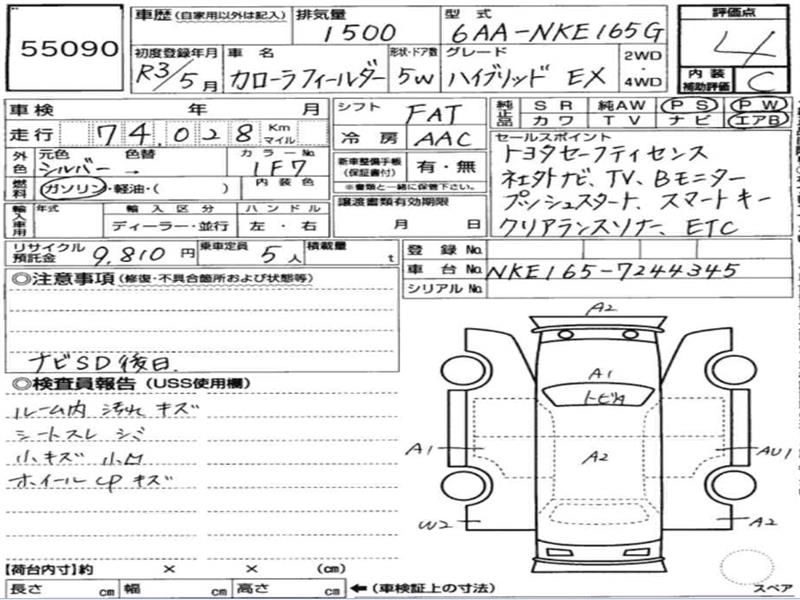 55090
車歴(自家用以外は記入) 排気量 1500 型式 6AA-NKE165G
評価点 4
初度登録年月 R3/5月 車名 カローラフィールダー 形状・ドア数 5W グレード ハイブリッド EX 2WD・4WD
内装補助評価 C
車検 年 月 シフト FAT
純正品 SR 純AW PS PW
カワ TV ナビ エアB
走行 74,028 Km マイル 冷房 AAC
セールスポイント
トヨタセーフティセンス
社外ナビ、TV、Bモニター
プッシュスタート、スマートキー
クリアランスソナー、ETC
外色 元色 シルバー 色替 → カラーNo. 1F7
新車整備手帳(保証書付) 有・無
※書類と一緒に保管下さい。
燃料 ガソリン・軽油・( ) 内装色
輸入車用 年式 輸入区分 ハンドル
ディーラー・並行 左・右
譲渡書類有効期限
月 日
リサイクル預託金 9,810円 乗車定員 5人 積載量 t
登録No.
車台No. NKE165-7244345
シリアルNo.
◎注意事項(修復・不具合箇所および状態等)
ナビSD後日.
◎検査員報告(USS使用欄)
ルーム内 汚れ キズ
シートスレ シミ
小キズ 小凹
ホイールCP キズ
A2
A1
トビA
A2
A1
AU1
W2
A2
スペア
【荷台内寸】約 × × (cm)
長さ cm 幅 cm 高さ cm ←(車検証上の寸法)